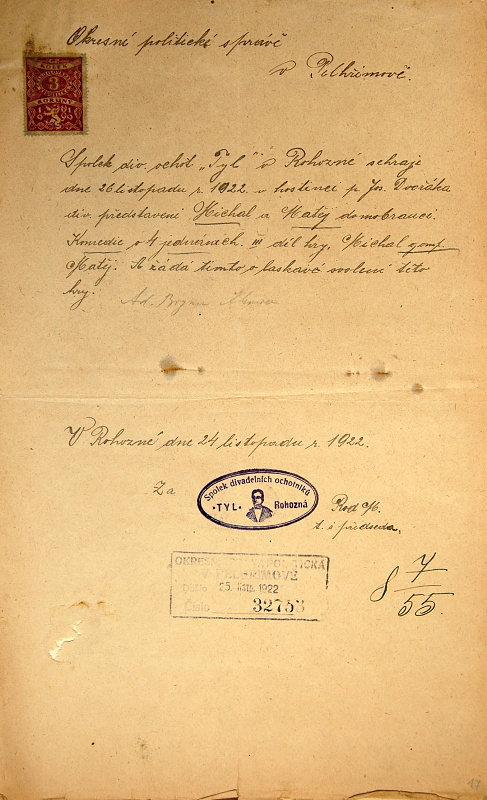 Okresní politické správě
v Pelhřimově.
KOLEK
3
KORUNY
Spolek div. ochot. „Tyl" v Rohozné sehraje
dne 26 listopadu r. 1922. v hostinci p. Jos. Dvořáka
div. představení Michal a Matěj domobranci.
Komedie o 4 jednáních. III díl hry, Michal
Matěj. A žádá tímto o laskavé svolení této
hry.
V Rohozné dne 24 listopadu r. 1922.
Za
Spolek divadelních ochotníků
·TYL· Rohozná
t. č předseda.
OKRESNÍ POLITICKÁ
V PELHŘIMOVĚ
Došlo 25. listp. 1922
Číslo 32753
§ 7
55.